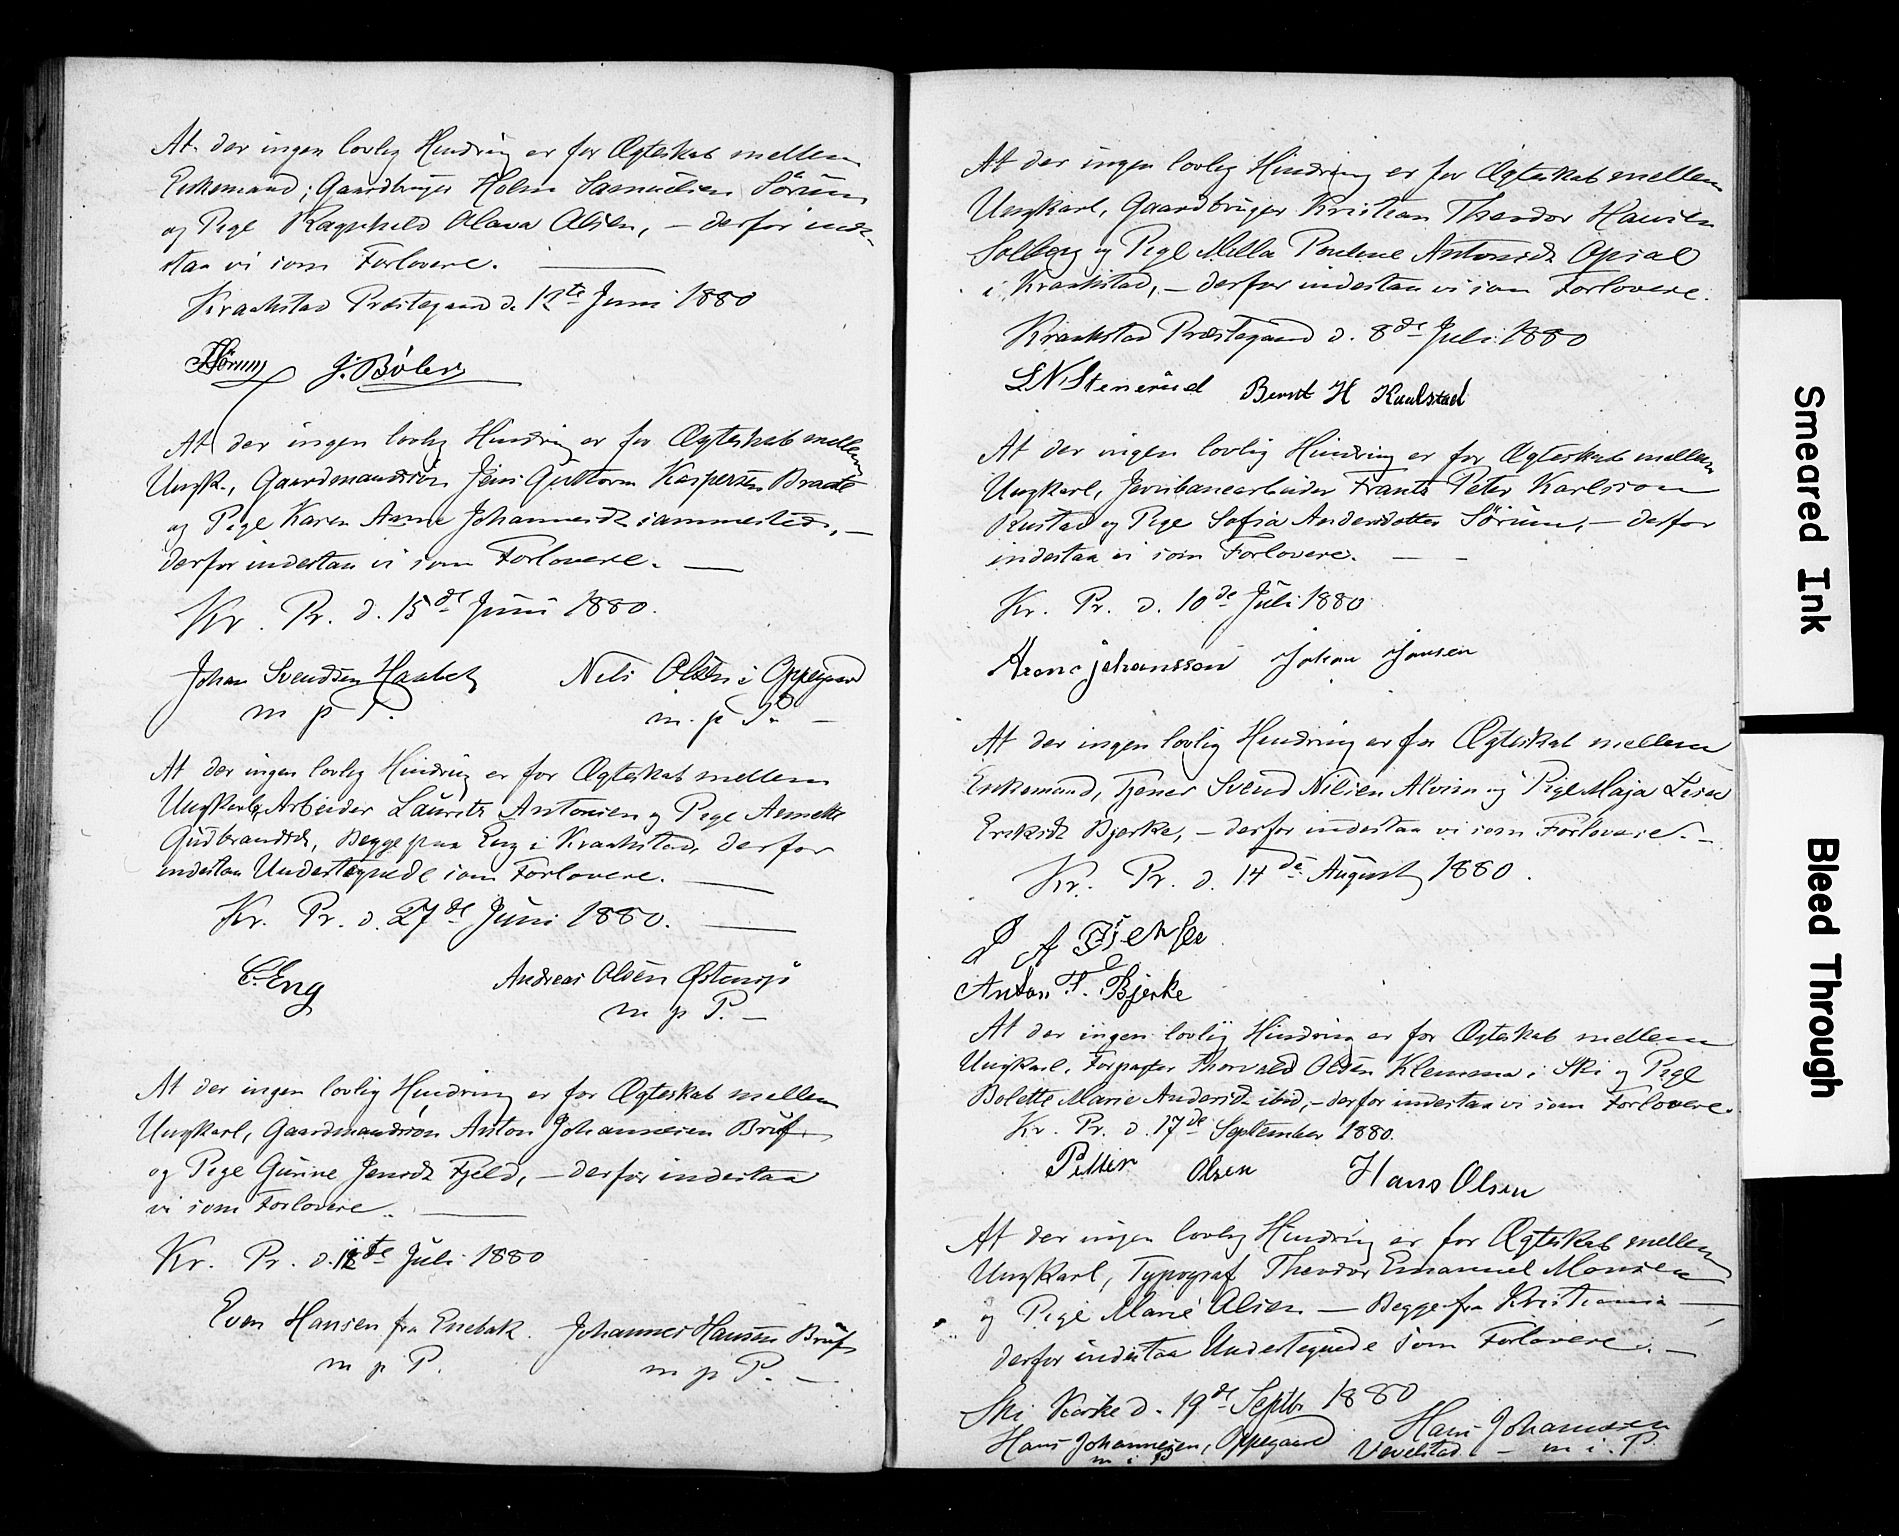 At der ingen lovlig Hindring er for Ægteskab mellem
Enkemand, Gaardbruger Holm Samuelsen Sørum
og Pige Ragnhild Olava Olsen, — derfor inde-
staa vi som Forlovere. —
Kraakstad Præstegaard d. 12te Juni 1880
Sørum J. Böler
At der ingen lovlig Hindring er for Ægteskab mellem
Ungk., Gaardmandssøn Jens Guttorm Kaspersen Braate
og Pige Karen Anne Johannesdt sammesteds, —
derfor indestaa vi som Forlovere. —
Kr. Pr. d. 15de Juni 1880.
Johan Svendsen Haabet Nils Olsen i Oppegaard
m p P. m. p P. —
At der ingen lovlig Hindring er for Ægteskab mellem
Ungkarl, Arbeider Laurits Antonsen og Pige Annette
Gudbrandsdt, Begge paa Eng i Kraakstad, derfor
indestaa Undertegnede som Forlovere. —
Kr. Pr. d. 27de Juni 1880. —
C. Eng Andreas Olsen
m p P. —
At der ingen lovlig Hindring er for Ægteskab mellem
Ungkarl, Gaardmandssøn Anton Johannesen
og Pige Gurine Jensdt Fjeld, — derfor indestaa
vi som Forlovere. —
Kr. Pr. d. Juli 1880
Even Hansen fra Enebak. Johannes Hansen
m p P. m p P. —
At der ingen lovlig Hindring er for Ægteskab mellem
Ungkarl, Gaardbruger Kristian Theodor Hansen
Solberg og Pige Milla Pauline Antonsdt Opsal
i Kraakstad, — derfor indestaa vi som Forlovere.
Kraakstad Præstegaard d. 8de Juli 1880
L N Stenerud Bernt H Kaalstad
At der ingen lovlig Hindring er for Ægteskab mellem
Ungkarl, Jernbanearbeider Frants Peter Karlsson
Rustad og Pige Sofia Andersdotter Sørum, — derfor
indestaa vi som Forlovere. — —
Kr. Pr. d. 10de Juli 1880
Johansson Johan Jansen
At der ingen lovlig Hindring er for Ægteskab mellem
Enkemand, Tjener Svend Nilsen Alvim og Pige Maja Lisa
Eriksdt Bjerke, — derfor indestaa vi som Forlovere. —
Kr. Pr. d. 14de August 1880.
Anton F. Bjerke
At der ingen lovlig Hindring er for Ægteskab mellem
Ungkarl, Forpagter Thorvald Olsen Klemma i Ski og Pige
Bolette Marie Andersdt ibid, — derfor indestaa vi som Forlovere.
Kr. Pr. d. 17de September 1880.
Petter Olsen Hans Olsen
At der ingen lovlig Hindring er for Ægteskab mellem
Ungkarl, Typograf Theodor Emanuel Monsen
og Pige Marie Olsen — Begge fra Kristiania —
derfor indestaa Undertegnede som Forlovere. —
Ski Kirke d. 19de Septbr 1880
Hans Johannesen, Oppegaard Hans Johansen
m i P Vevelstad — m i. P.
Smeared Ink
Bleed Through